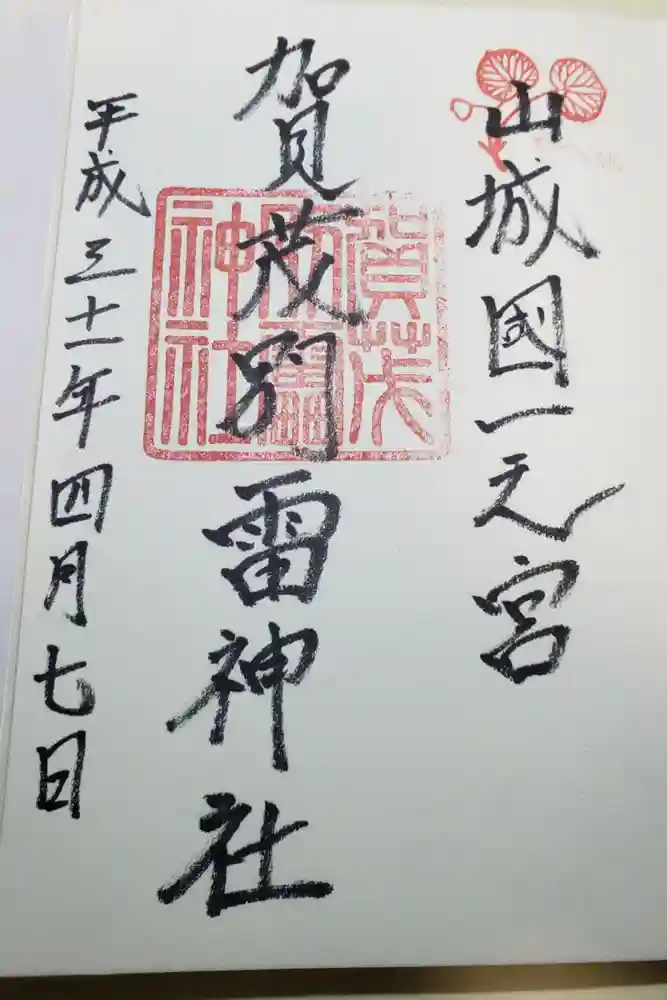 山城國一之宮
賀茂別雷神社
賀茂
別雷
神社
平成三十一年四月七日